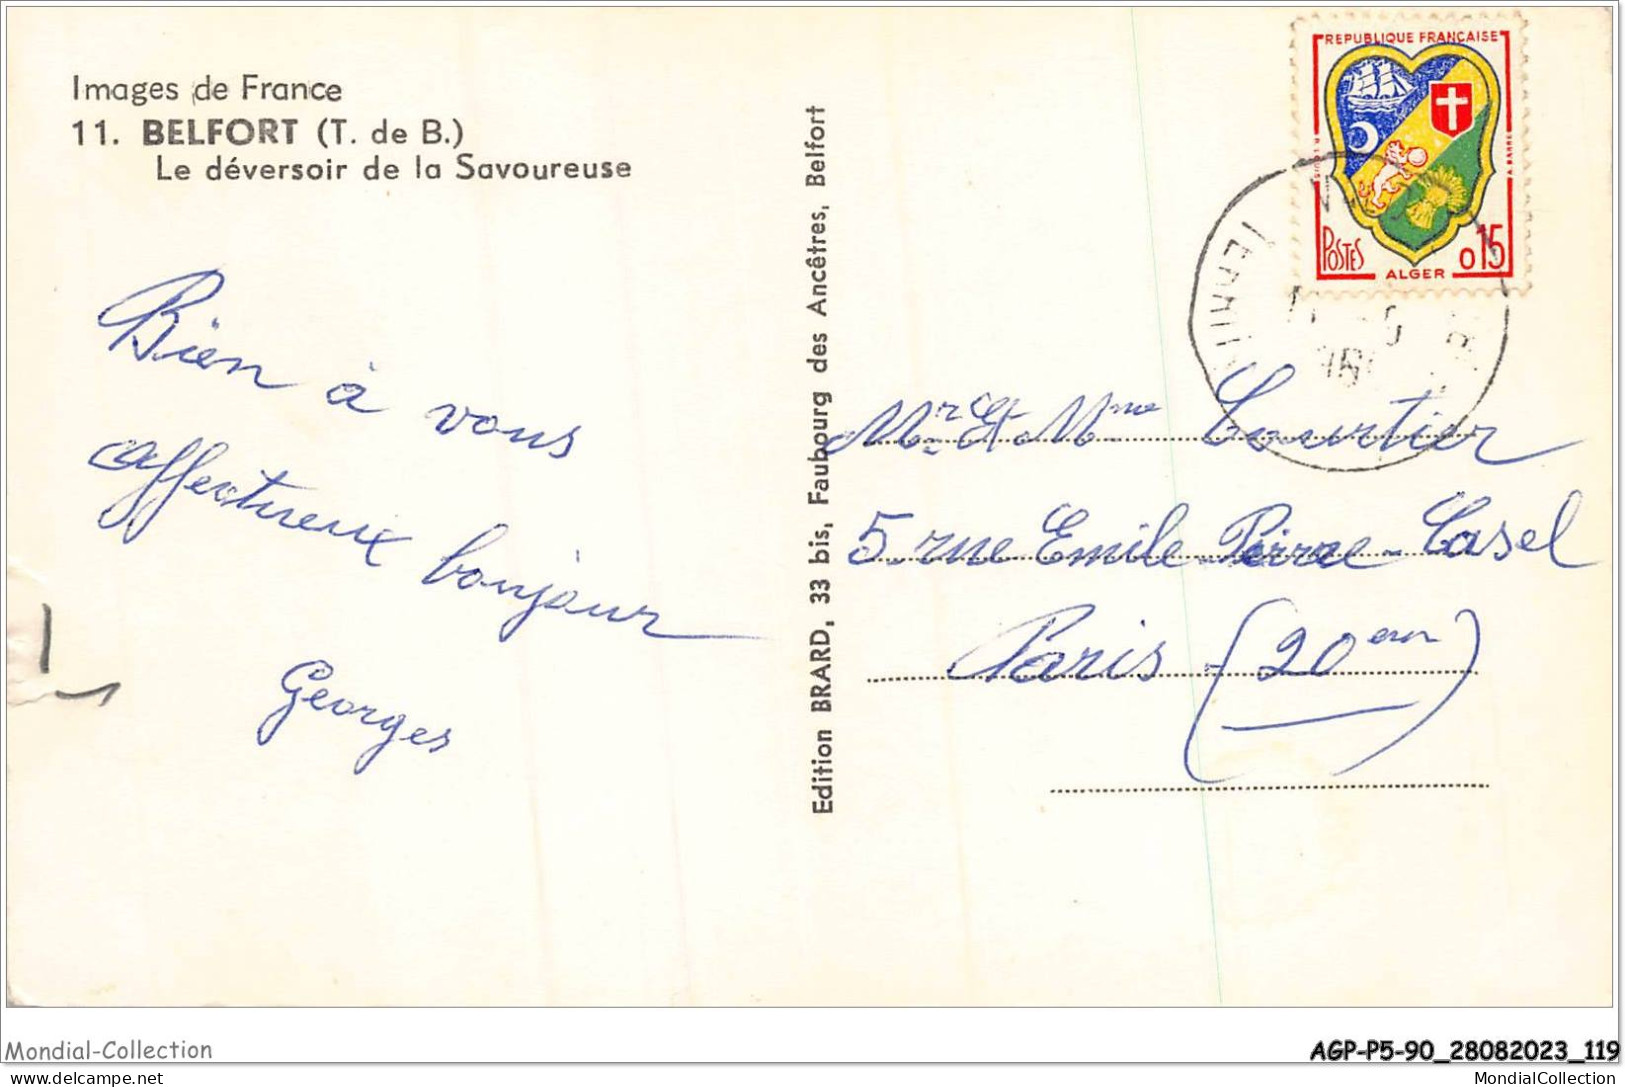 Images de France
11. BELFORT (T. de B.)
Le déversoir de la Savoureuse
Bien à vous
affectueux bonjour
Georges
Edition BRARD, 33 bis, Faubourg des Ancêtres, Belfort
REPUBLIQUE FRANÇAISE
POSTES
ALGER
0,15
Mr et Mme Courtier
5 rue Emile Pierre Casel
Paris (20em)
Mondial-Collection
AGP-P5-90_28082023_119
Mondial-Collection.com
MondialCollection